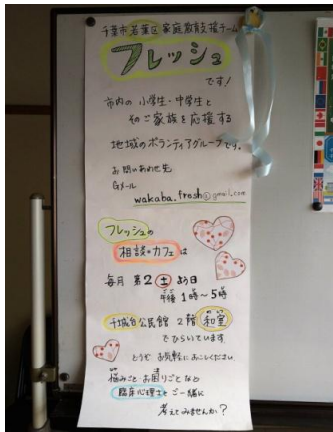 千葉市若葉区家庭教育支援チーム
フレッシュ
です!
市内の小学生・中学生と
そのご家族を応援する
地域のボランティアグループです。
お問いあわせ先
Gメール
wakaba.frash@gmail.com
フレッシュの
相談カフェは
毎月 第2土よう日
午後 1時～5時
千城台公民館 2階 和室
でひらいています
どうぞ お気軽におこしください
悩みごと・お困りごとなど
臨床心理士とご一緒に
考えてみませんか?